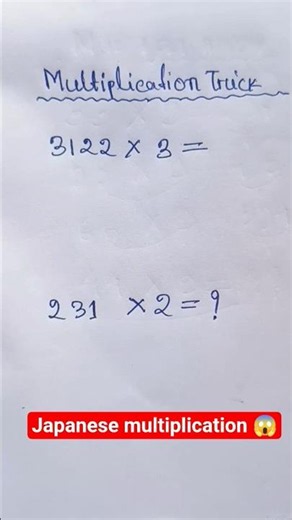 Multiplication Trick
3122 × 3 =
231 × 2 = ?
Japanese multiplication 😱